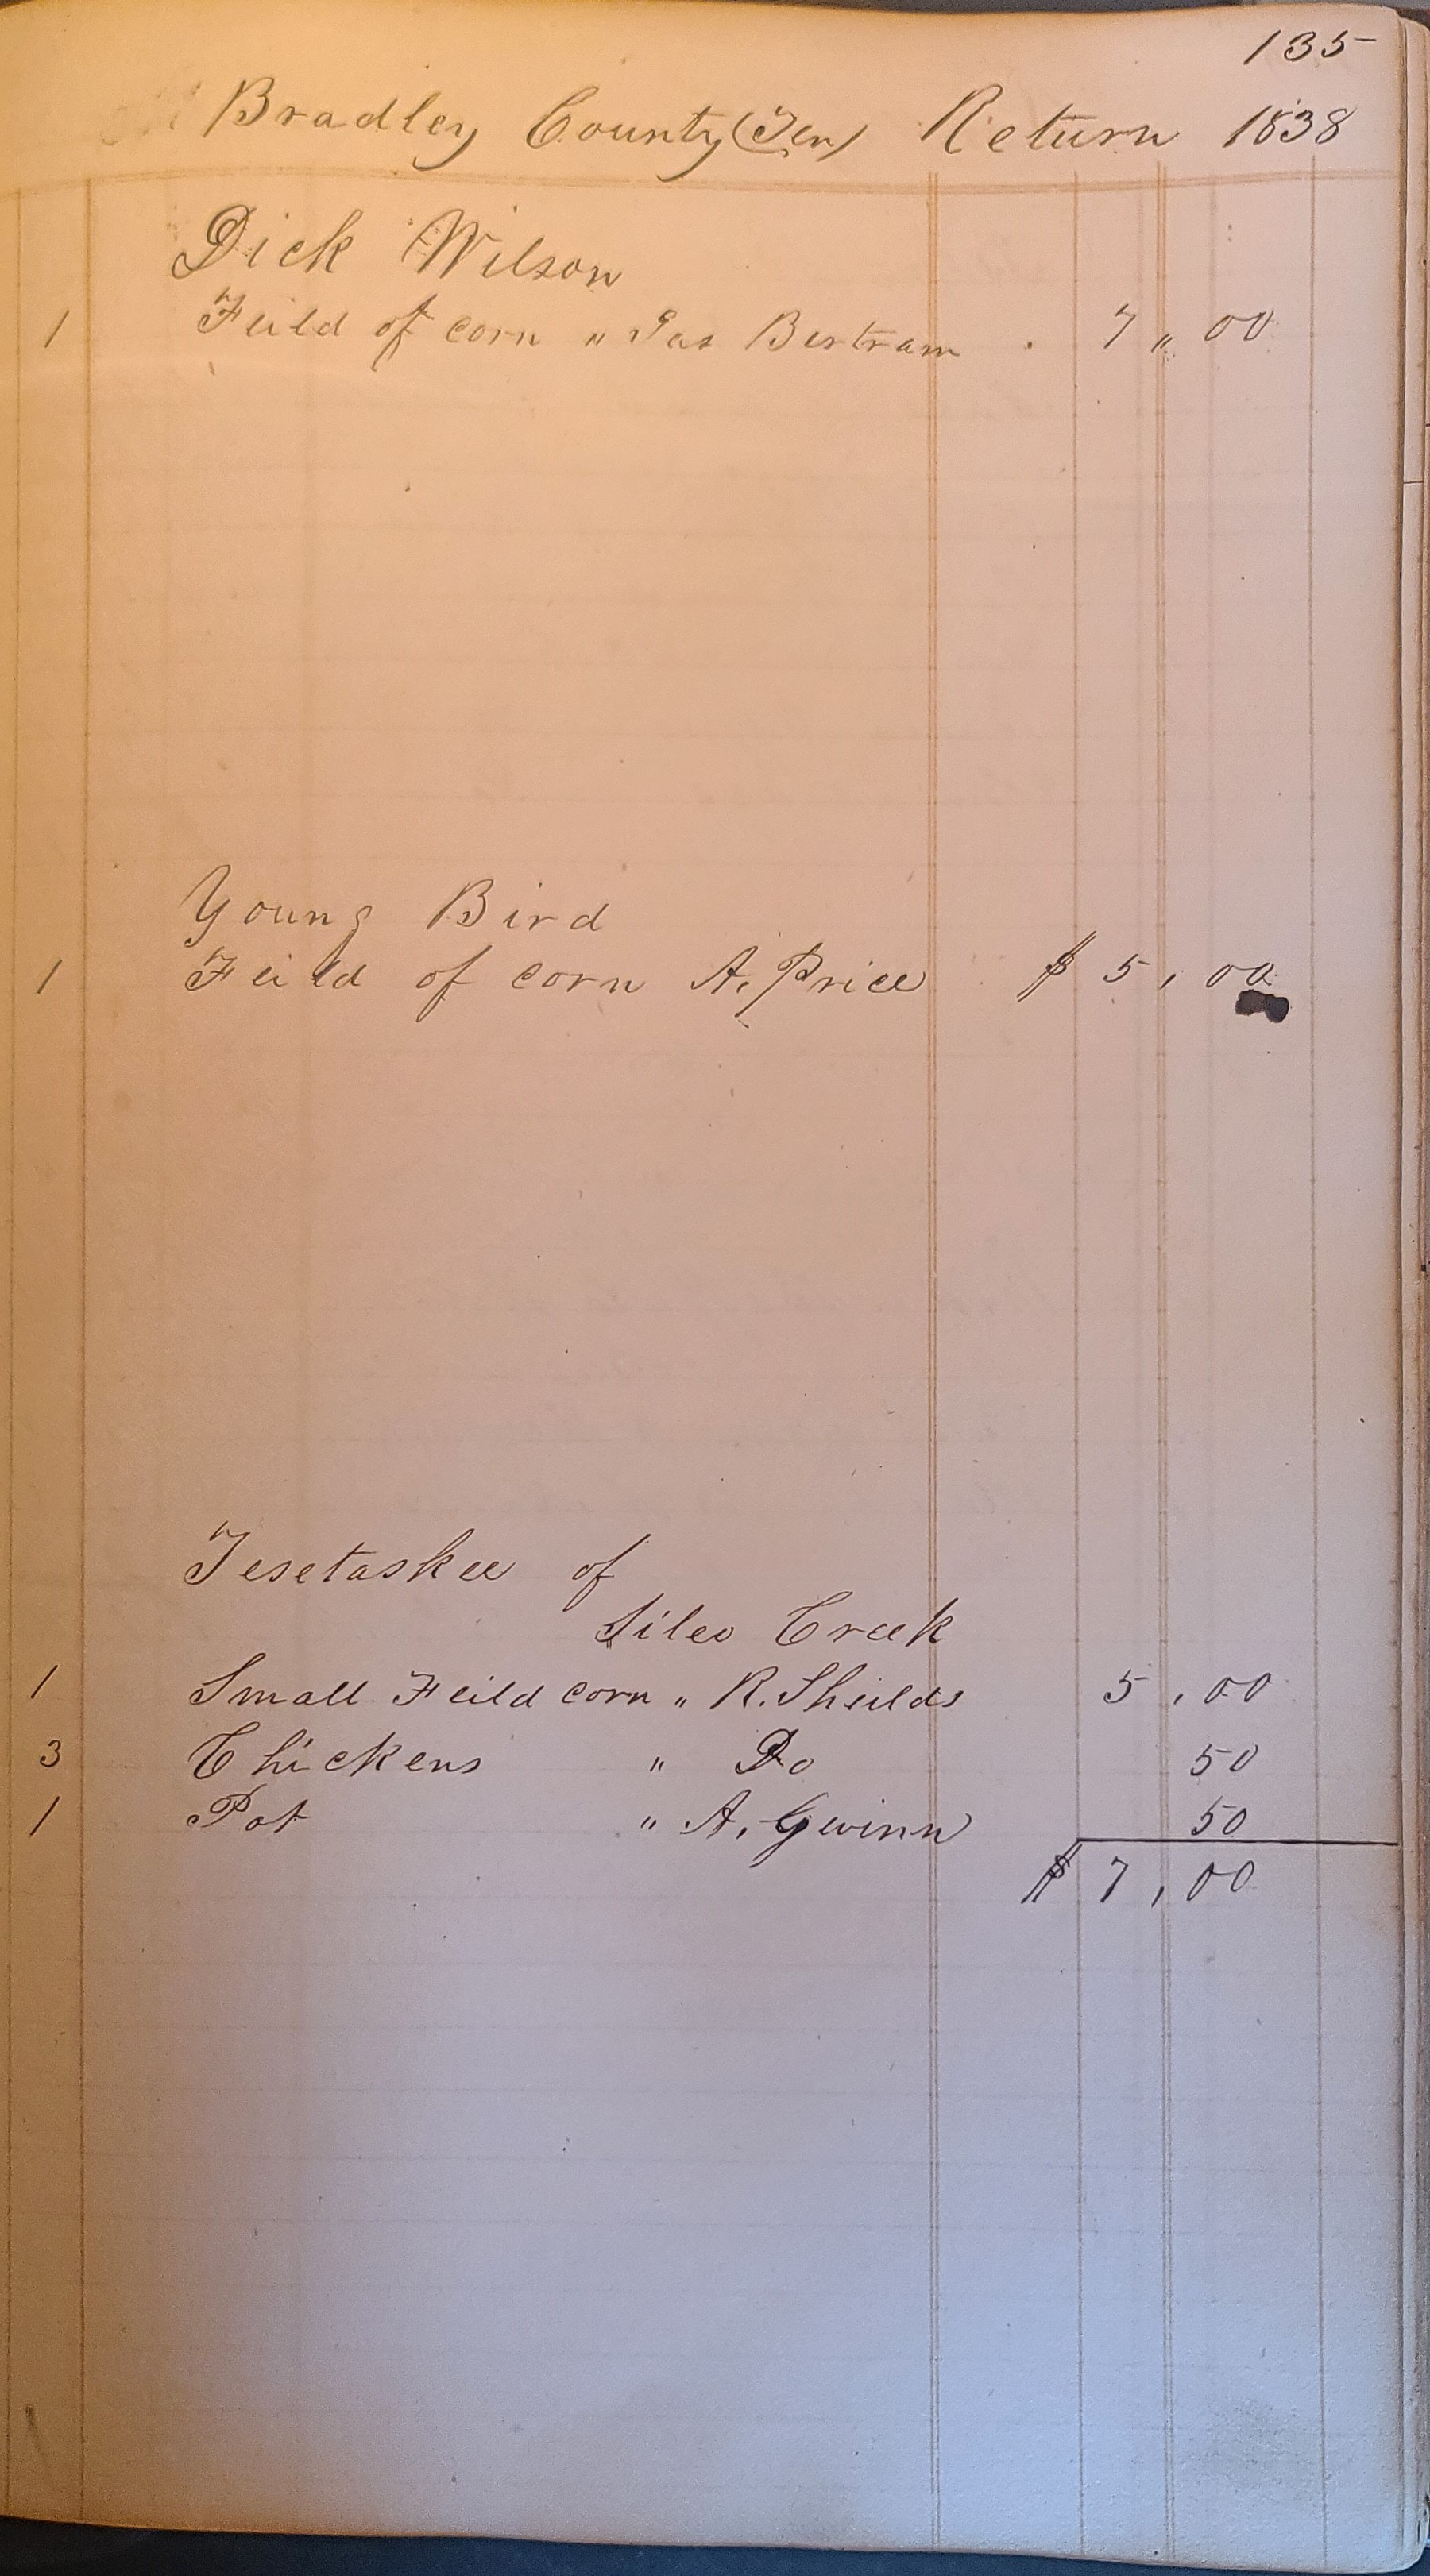 135
Bradley County (Ten) Return 1838
Dick Wilson
1 Feild of corn " Jas Bertram . 7 " 00
Young Bird
1 Feild of corn A. Price $ 5 , 00
Tesetaskee of
Sileo Creek
1 Small Feild corn " R. Sheilds 5 , 00
3 Chickens " Do 50
1 Pot " A. Gwinn 50
$ 7 , 00